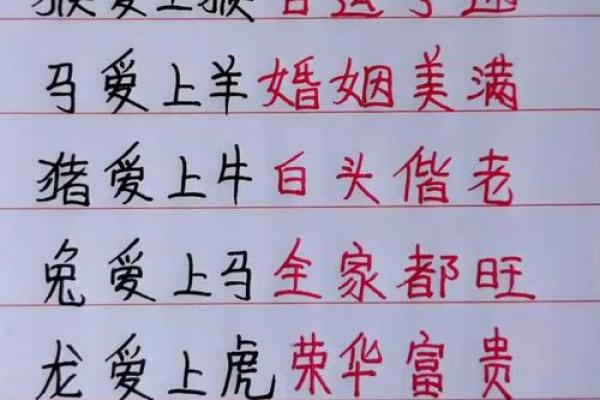 猴爱上猴百送亨通
马爱上羊婚姻美满
猪爱上牛白头偕老
兔爱上马全家都旺
龙爱上虎荣华富贵